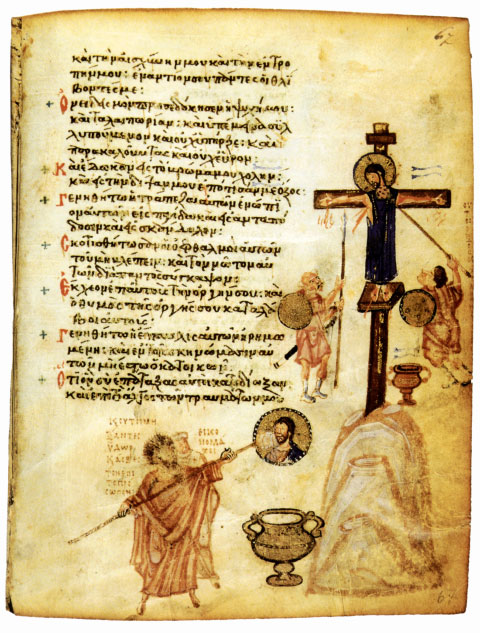 καὶ τὴν αἰσχύνην μου καὶ τὴν ἐντρο
πήν μου: ἐναντίον σου πάντες οἱ θλί
βοντές με:
Ὀνειδισμὸν προσεδόκησεν ἡ ψυχή μου:
καὶ ταλαιπωρίαν: καὶ ὑπέμεινα συλ
λυπούμενον καὶ οὐχ ὑπῆρξεν: καὶ
παρακαλοῦντας καὶ οὐχ εὗρον:
Καὶ ἔδωκαν εἰς τὸ βρῶμά μου χολὴν:
καὶ εἰς τὴν δίψαν μου ἐπότισάν με ὄξος:
Γενηθήτω ἡ τράπεζα αὐτῶν ἐνώπι
ον αὐτῶν εἰς παγίδα καὶ εἰς ἀνταπό
δοσιν καὶ εἰς σκάνδαλον:
Σκοτισθήτωσαν οἱ ὀφθαλμοὶ αὐτῶν
τοῦ μὴ βλέπειν: καὶ τὸν νῶτον αὐ
τῶν διὰ παντὸς σύγκαμψον:
Ἔκχεον ἐπ αὐτοὺς τὴν ὀργήν σου: καὶ
ὁ θυμὸς τῆς ὀργῆς σου καταλά
βοι αὐτούς:
Γενηθήτω ἡ ἔπαυλις αὐτῶν ἠρημω
μένη: καὶ ἐν τοῖς σκηνώμασιν αὐ
τῶν μὴ ἔστω ὁ κατοικῶν:
Ὅτι ὃν σὺ ἐπάταξας αὐτοὶ κατεδίωξαν:
καὶ ἐπὶ τὸ ἄλγος τῶν τραυμάτων μου
67